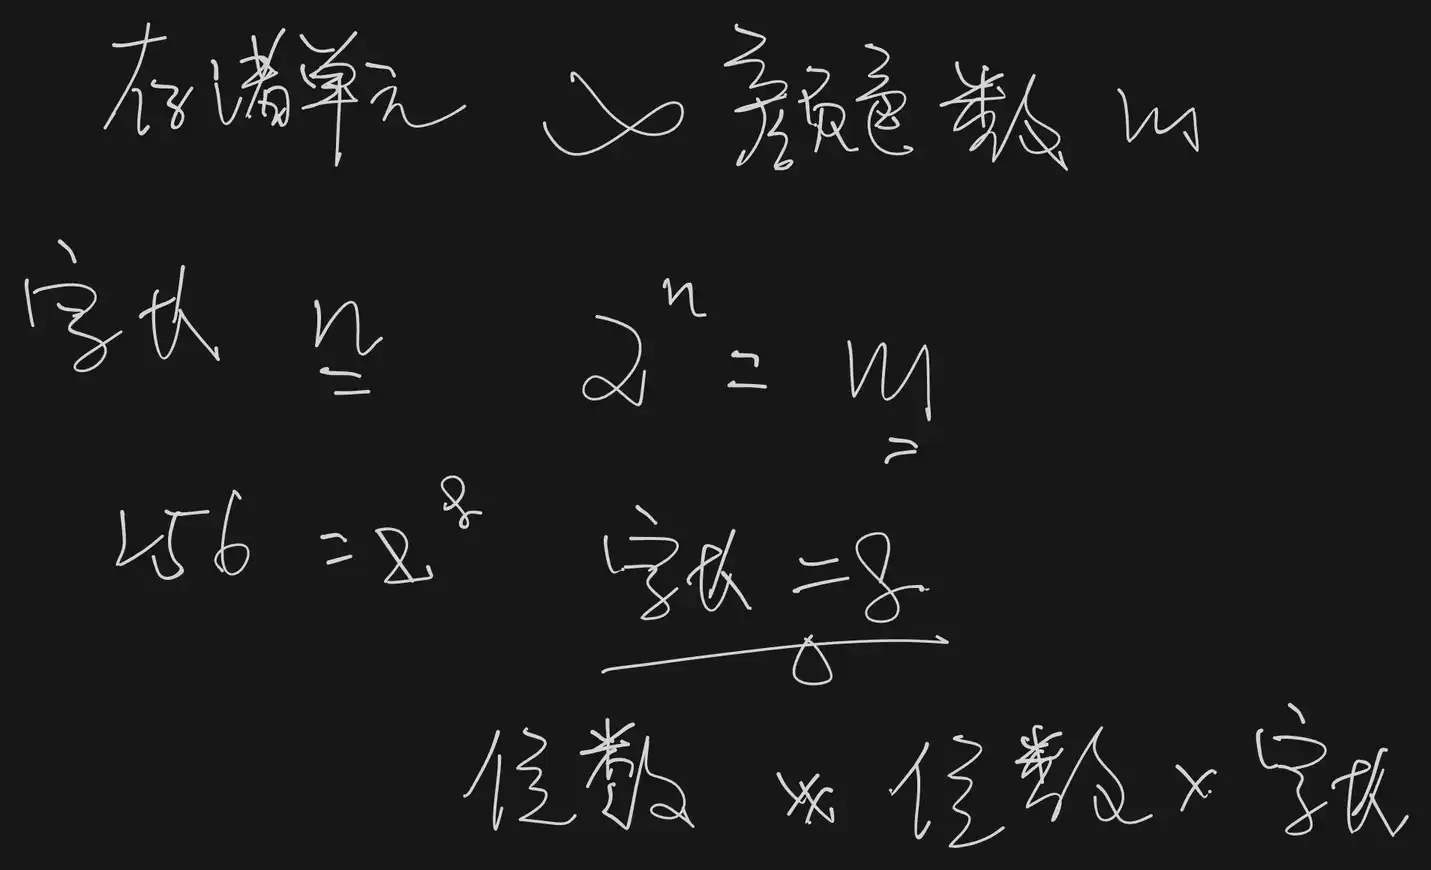 存储单元 ∽ 颜色数 m
字长 n 2^n = m
256 = 2^8 字长 = 8
位数 × 位数 × 字长